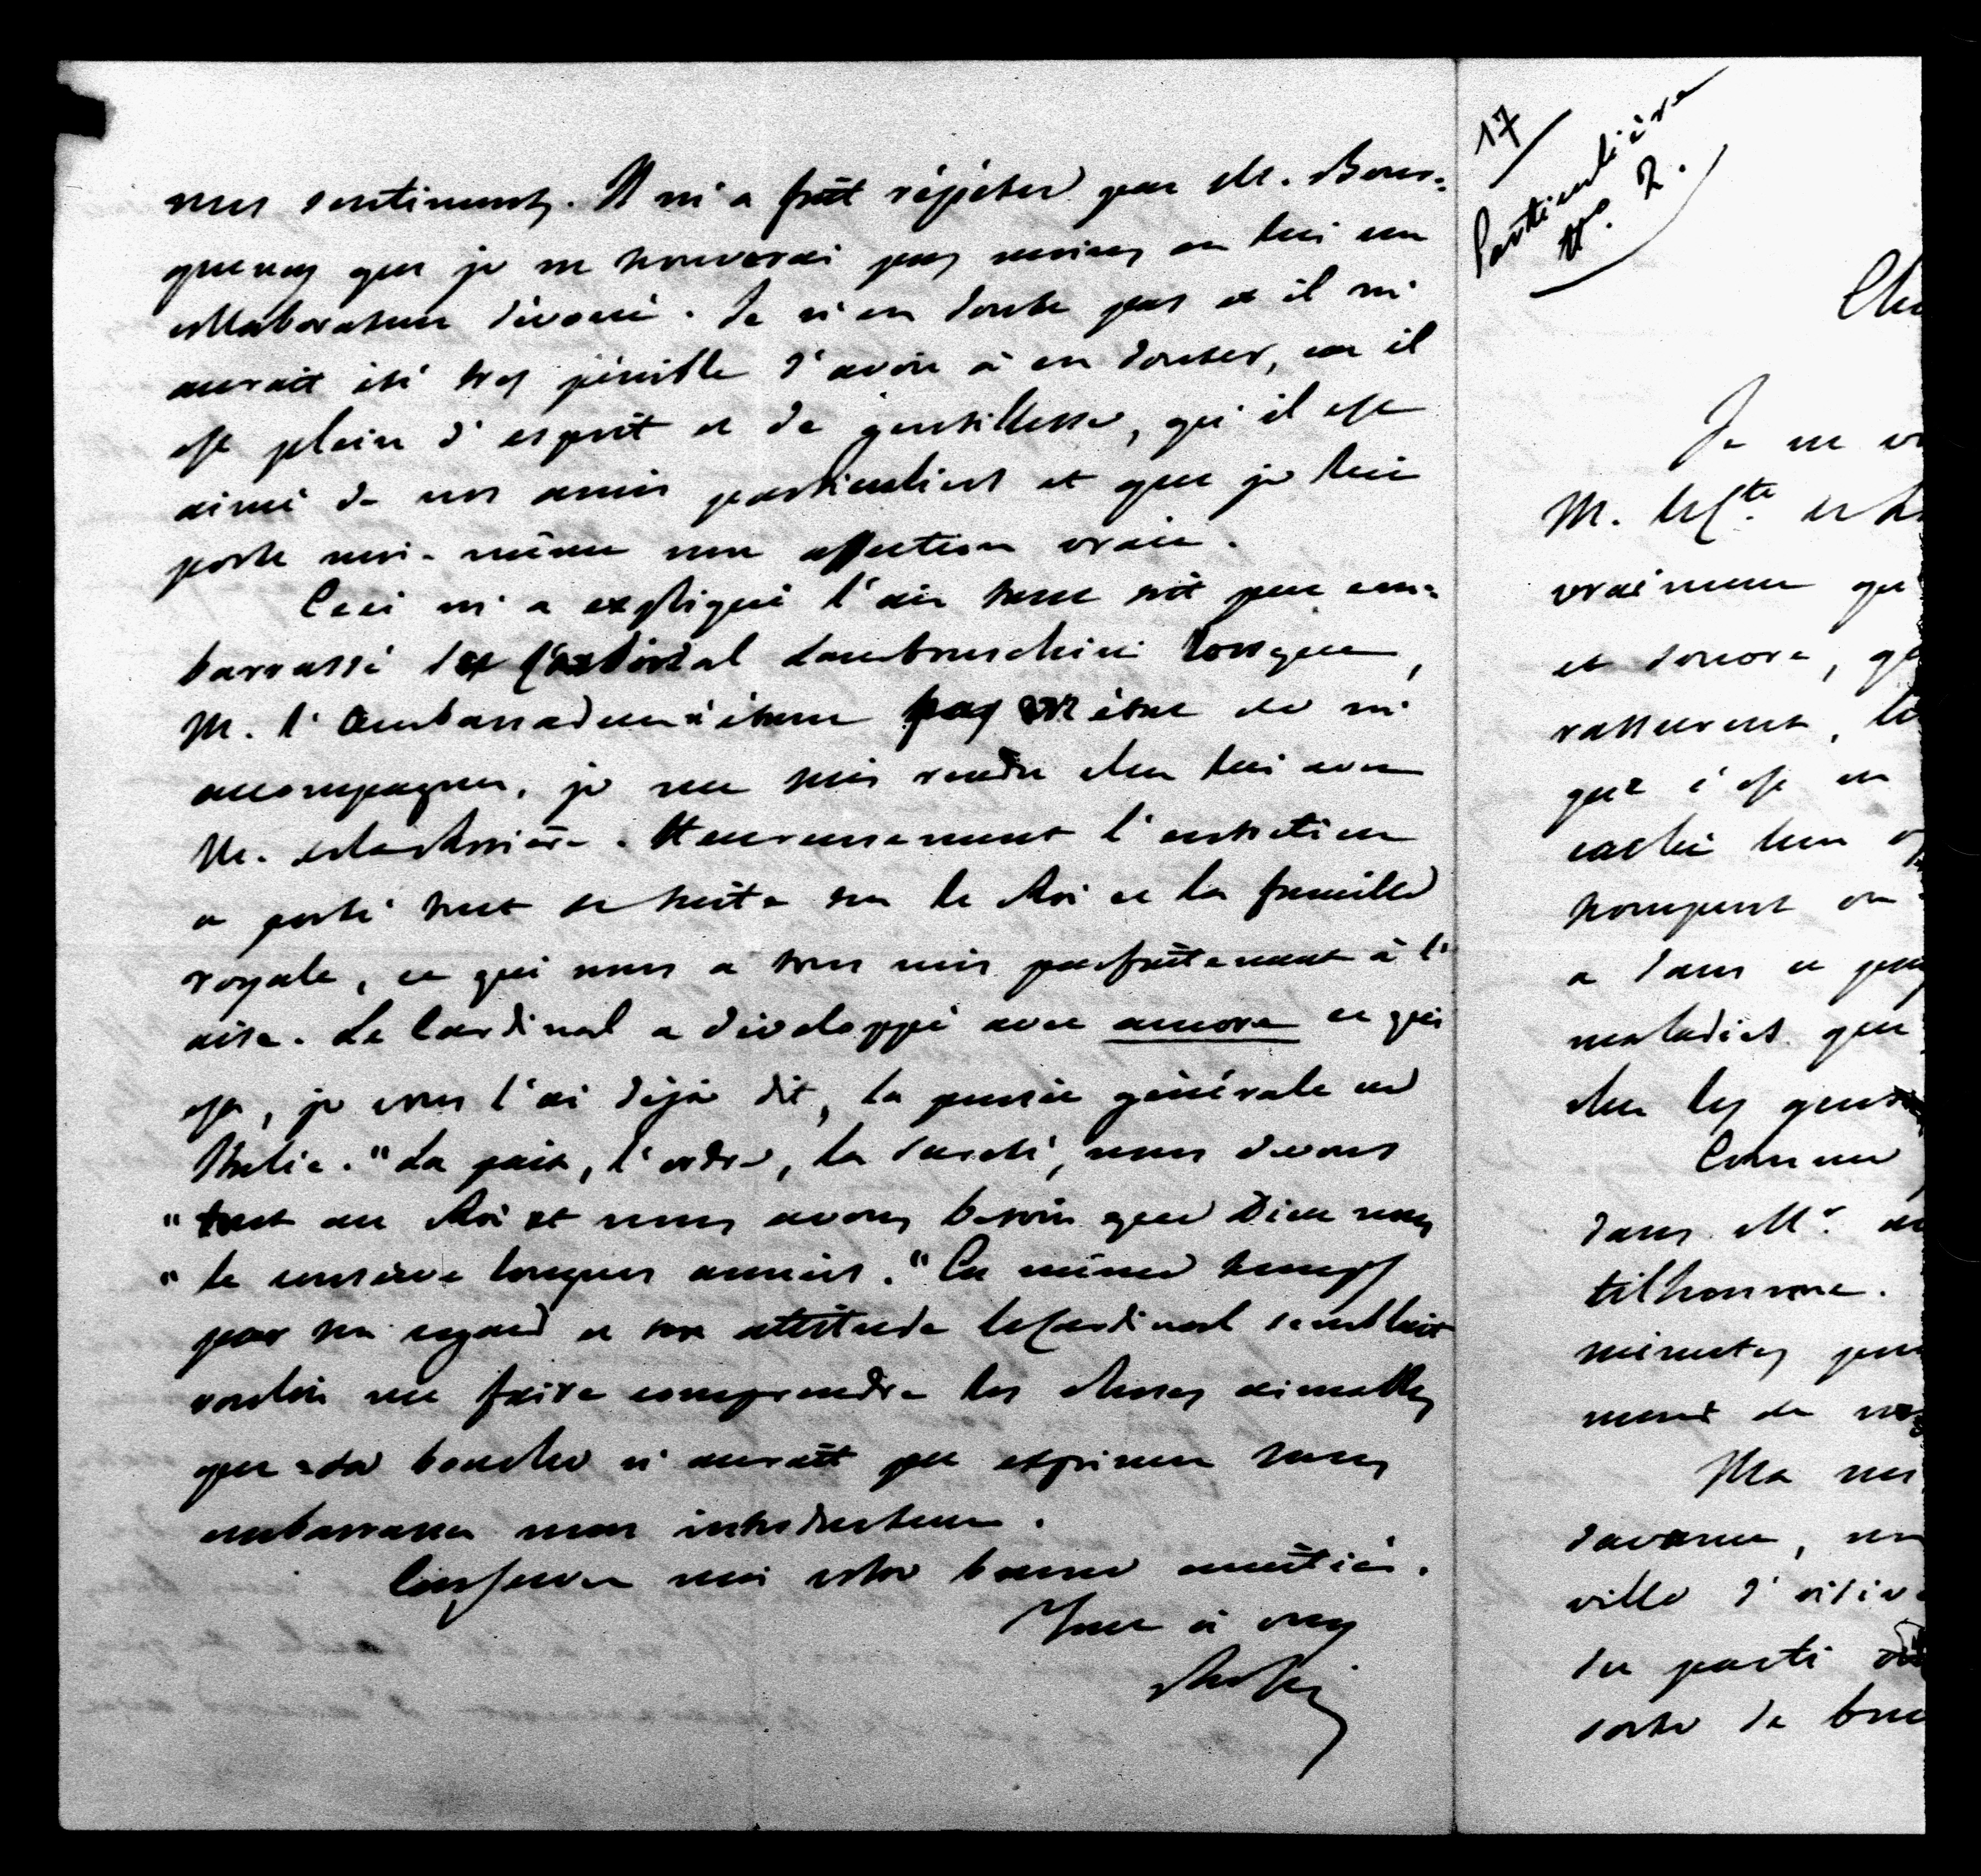 mes sentiments. Il m'a fait répéter par M. Bour-
queney que je ne trouverai pas moins en lui un
collaborateur dévoué. Je n'en doute pas et il m'
aurait été très pénible d'avoir à en douter, car il
est plein d'esprit et de gentillesse, qu'il est
aimé de nos amis particuliers et que je lui
porte moi-même une affection vraie.
Ceci m'a expliqué l'air tant soit peu em-
barrassé du Cardinal Lambruschini lorsque,
M. l'Ambassadeur n'étant pas en état de m'
accompagner, je me suis rendu chez lui avec
M. de la Rosière. Heureusement l'entretien
a porté tout de suite sur le Roi et la famille
royale, ce qui nous a tous mis parfaitement à l'
aise. Le Cardinal a développé avec amore ce qui
est, je vous l'ai déjà dit, la pensée générale en
Italie. "La paix, l'ordre, la sureté, nous devons
"tout au Roi et nous avons besoin que Dieu nous
"le conserve longues années." En même temps
par son regard et son attitude le Cardinal semblait
vouloir me faire comprendre les choses aimables
que sa bouche n'aurait pu exprimer sans
embarrasser mon introducteur.
Conservez moi votre bonne amitié.
Tout à vous
Rossi
17
Particulière
No. 2.
Je ne
M. le Cte. de
vraiment
et sonore,
rassurent,
que c'est un
caché
trompent ou
a dans ce
maladies que
chez les gens
Comme
dans Mr.
tilhomme.
minutes
ment de
Ma
savance,
ville d'
du parti
sorte de